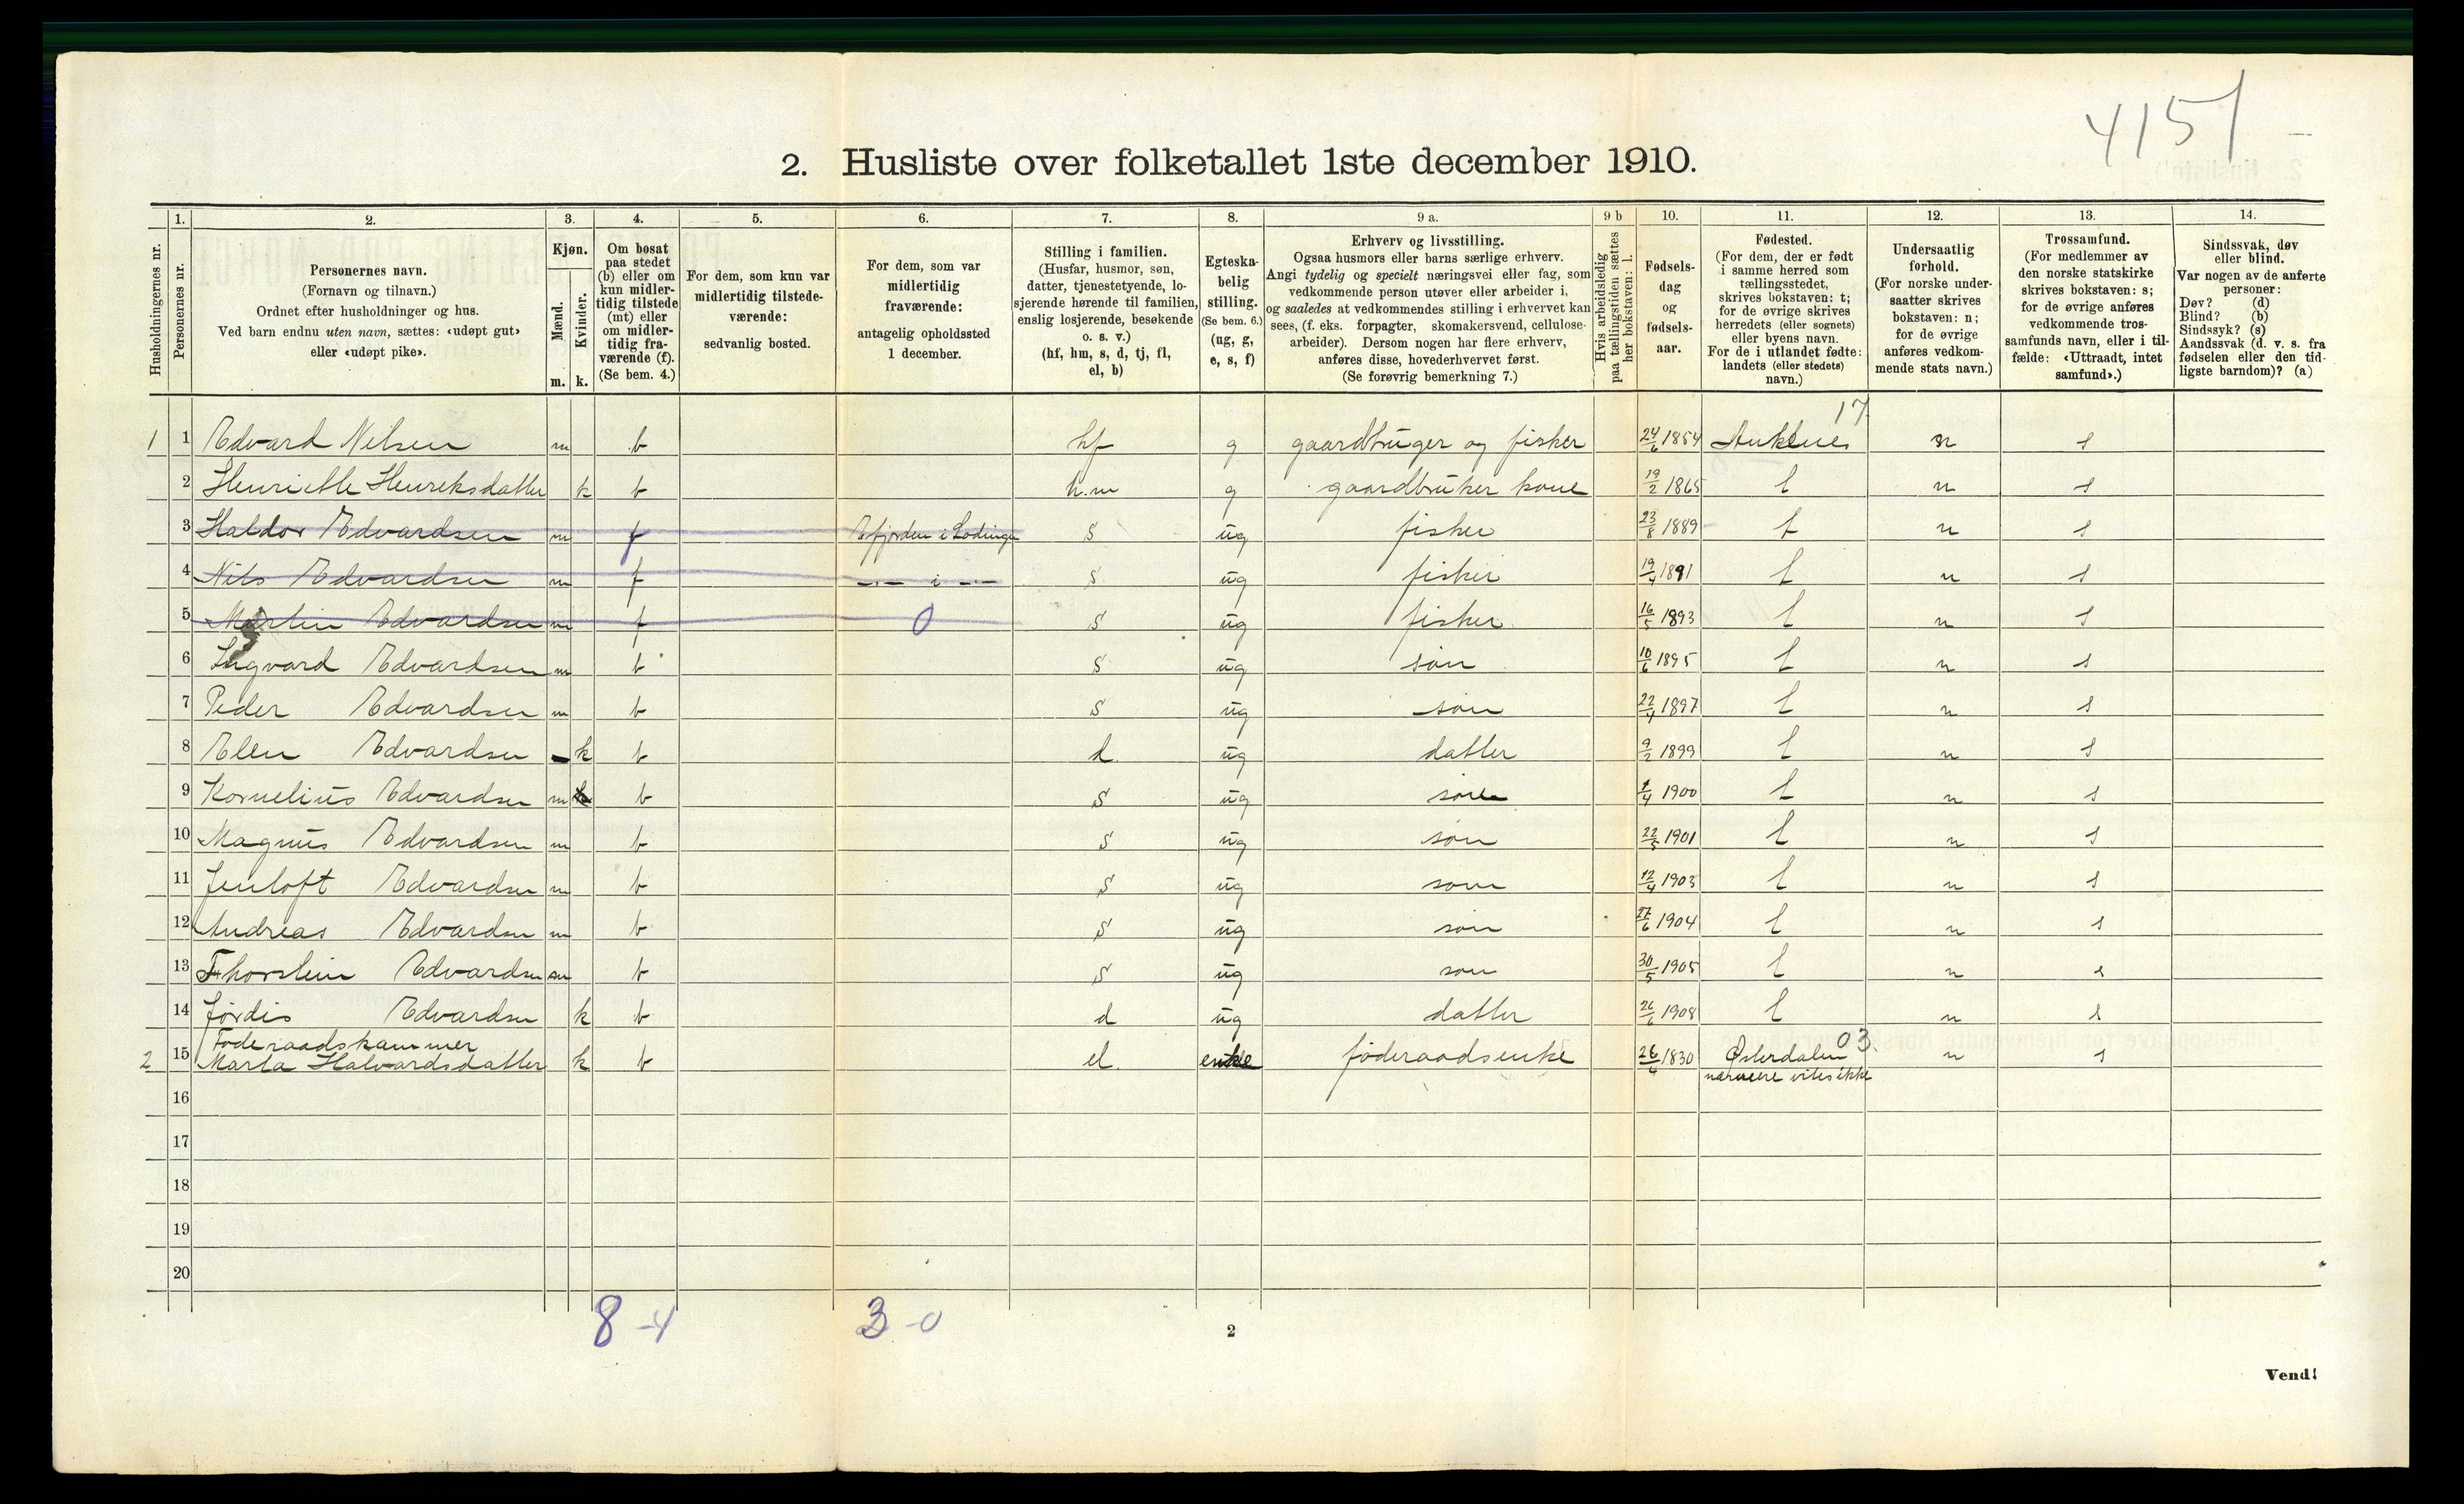 4151 –
2. Husliste over folketallet 1ste december 1910.
Husholdningernes nr.
1.
Personernes nr.
2.
Personernes navn.
(Fornavn og tilnavn.)
Ordnet efter husholdninger og hus.
Ved barn endnu uten navn, sættes: «udøpt gut»
eller «udøpt pike».
3.
Kjøn.
Mænd.
Kvinder.
m. k.
4.
Om bosat
paa stedet
(b) eller om
kun midler-
tidig tilstede
(mt) eller
om midler-
tidig fra-
værende (f).
(Se bem. 4.)
5.
For dem, som kun var
midlertidig tilstede-
værende:
sedvanlig bosted.
6.
For dem, som var
midlertidig
fraværende:
antagelig opholdssted
1 december.
7.
Stilling i familien.
(Husfar, husmor, søn,
datter, tjenestetyende, lo-
sjerende hørende til familien,
enslig losjerende, besøkende
o. s. v.)
(hf, hm, s, d, tj, fl,
el, b)
8.
Egteska-
belig
stilling.
(Se bem. 6.)
(ug, g,
e, s, f)
9 a.
Erhverv og livsstilling.
Ogsaa husmors eller barns særlige erhverv.
Angi tydelig og specielt næringsvei eller fag, som
vedkommende person utøver eller arbeider i,
og saaledes at vedkommendes stilling i erhvervet kan
sees, (f. eks. forpagter, skomakersvend, cellulose-
arbeider). Dersom nogen har flere erhverv,
anføres disse, hovederhvervet først.
(Se forøvrig bemerkning 7.)
9 b
Hvis arbeidsledig
paa tællingstiden sættes
her bokstaven: l.
10.
Fødsels-
dag
og
fødsels-
aar.
11.
Fødested.
(For dem, der er født
i samme herred som
tællingsstedet,
skrives bokstaven: t;
for de øvrige skrives
herredets (eller sognets)
eller byens navn.
For de i utlandet fødte:
landets (eller stedets)
navn.)
12.
Undersaatlig
forhold.
(For norske under-
saatter skrives
bokstaven: n;
for de øvrige
anføres vedkom-
mende stats navn.)
13.
Trossamfund.
(For medlemmer av
den norske statskirke
skrives bokstaven: s;
for de øvrige anføres
vedkommende tros-
samfunds navn, eller i til-
fælde: «Uttraadt, intet
samfund».)
14.
Sindssvak, døv
eller blind.
Var nogen av de anførte
personer:
Døv? (d)
Blind? (b)
Sindssyk? (s)
Aandssvak (d. v. s. fra
fødselen eller den tid-
ligste barndom)? (a)
17
1 1 Edvard Nilsen m b hf g gaardbruger og fisker 24/6 1854 n s
2 Henriette Henreksdatter k b h.m g gaardbruker kone 19/2 1865 t n s
3 Haldor Edvardsen m f Efjorden i Lodingen s ug fisker 23/8 1889 t n s
4 Nils Edvardsen m f –·– i –·– s ug fisker 19/4 1891 t n s
5 Martin Edvardsen m f 0 s ug fisker 16/5 1893 t n s
6 Ingvard Edvardsen m b s ug søn 10/6 1895 t n s
7 Peder Edvardsen m b s ug søn 22/4 1897 t n s
8 Ellen Edvardsen k b d. ug datter 9/2 1899 t n s
9 Kornelius Edvardsen m b s ug søn 1/4 1900 t n s
10 Magnus Edvardsen m b s ug søn 22/5 1901 t n s
11 Jentoft Edvardsen m b s ug søn 12/4 1903 t n s
12 Andreas Edvardsen m b s ug søn 27/6 1904 t n s
13 Thorstein Edvardsen m b s ug søn 30/5 1905 t n s
14 Jørdis Edvardsen k b d ug datter 26/6 1908 t n s
Føderaadskammer 03.
2 15 Marta Halvardsdatter k b el. enke føderaadsenke 26/4 1830 Østerdalen n s
nærmere vites ikke
16
17
18
19
20
8 – 4 3 – 0
2
Vend!